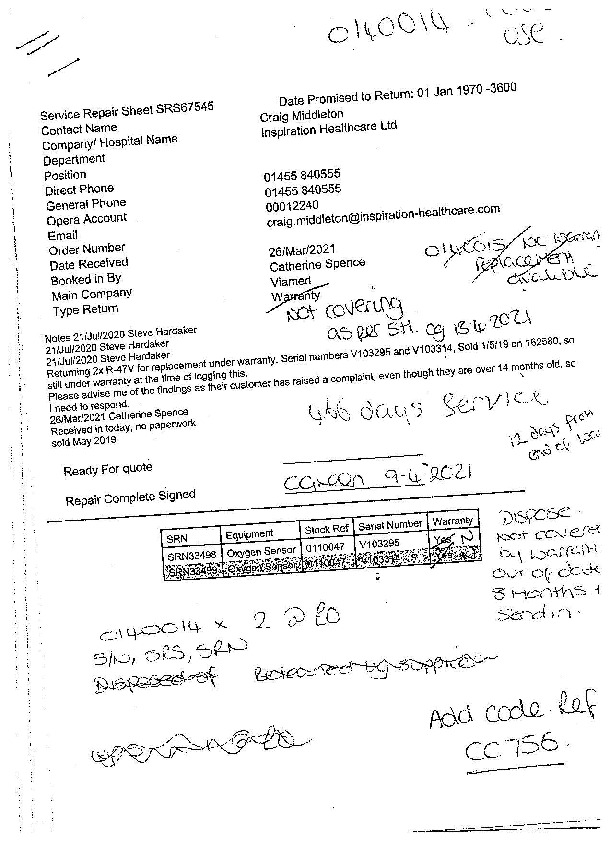 0140014
use
Service Repair Sheet SRS67545 Date Promised to Return: 01 Jan 1970 -3600
Contact Name Craig Middleton
Company/ Hospital Name Inspiration Healthcare Ltd
Department
Position
Direct Phone 01455 840555
General Phone 01455 840555
Opera Account 00012240
Email craig.middleton@inspiration-healthcare.com
Order Number
Date Received 26/Mar/2021
Booked in By Catherine Spence
Main Company Viamed
Type Return Warranty
0140015 NC
replacement
available
Not covering
as per SH. cg 13.4.2021
Notes 21/Jul/2020 Steve Hardaker
21/Jul/2020 Steve Hardaker
21/Jul/2020 Steve Hardaker
Returning 2x R-47V for replacement under warranty. Serial numbers V103295 and V103314, Sold 1/5/19 on 162580, so
still under warranty at the time of logging this.
Please advise me of the findings as their customer has raised a complaint, even though they are over 14 months old, so
I need to respond.
26/Mar/2021 Catherine Spence
Received in today, no paperwork
sold May 2019
466 days service
12 days from
end of
Ready For quote
Repair Complete Signed 9-4-2021
SRN Equipment Stock Ref Serial Number Warranty
SRN33498 Oxygen Sensor 0110047 V103295 Yes N
SRN33499 Oxygen Sensor 0110047 V103314
DISPOSE.
Not covered
by
Out of date
3 Months +
Send in.
0140014 x 2 @ £0
S/N, SRS, SRN
Disposed of
Add code Ref
CC756.